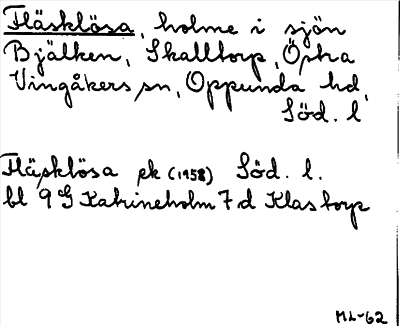 Fläsklösa, holme i sjön
Bjälken, Skalltorp, Östra
Vingåkers sn, Oppunda hd,
Söd. l
Fläsklösa ek (1958) Söd. l.
bl 9 G Katrineholm 7 d Klastorp
ML-62